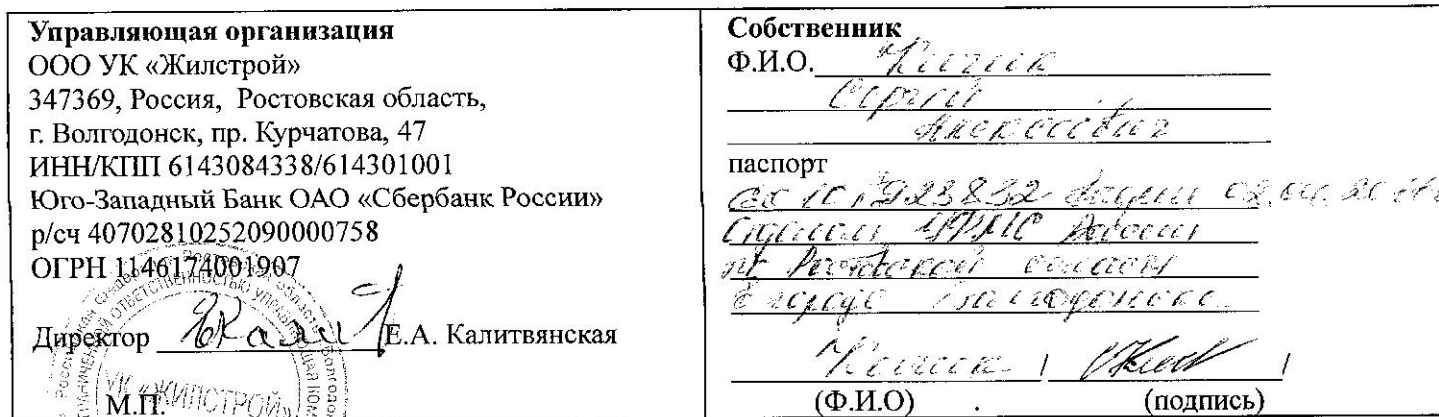 Управляющая организация
ООО УК «Жилстрой»
347369, Россия, Ростовская область,
г. Волгодонск, пр. Курчатова, 47
ИНН/КПП 6143084338/614301001
Юго-Западный Банк ОАО «Сбербанк России»
р/сч 40702810252090000758
ОГРН 1146174001907
Директор Е.А. Калитвянская
М.П.
УК «ЖИЛСТРОЙ»
Собственник
Ф.И.О.
Сергей
Алексеевич
паспорт
выдан
Отделом УФМС России
по Ростовской области
в городе Волгодонске
(Ф.И.О) (подпись)